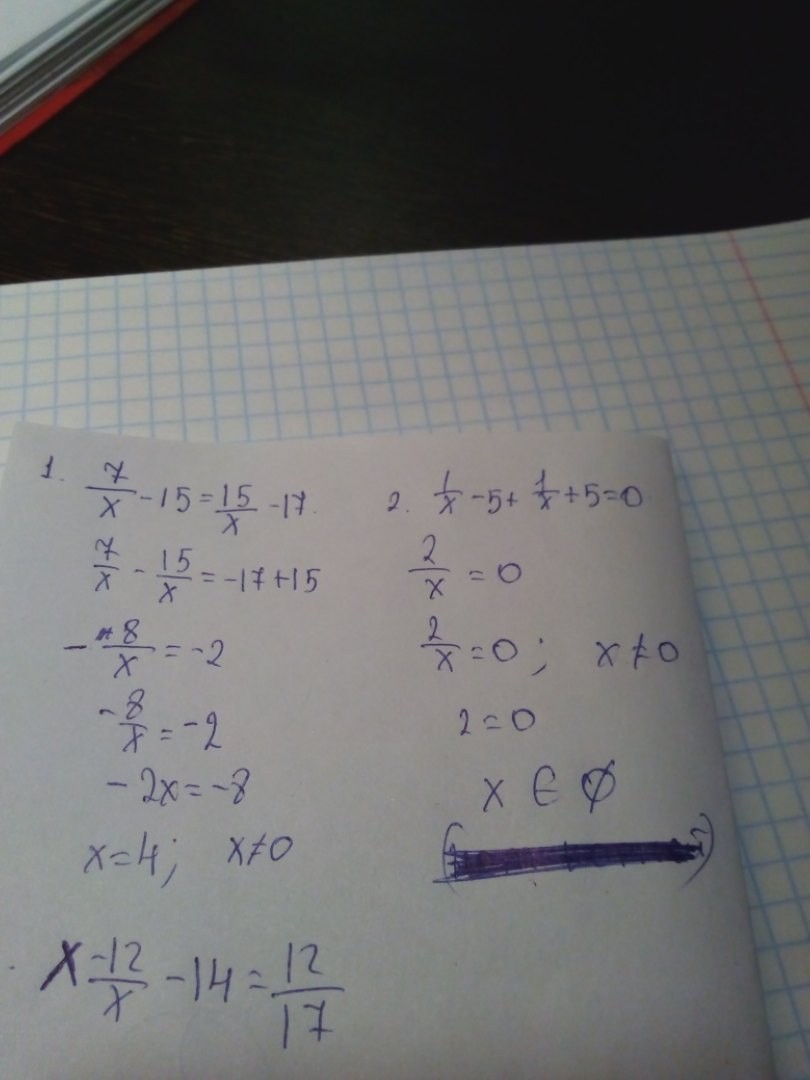 1. 7/x - 15 = 15/x - 17.
7/x - 15/x = -17 + 15
- 8/x = -2
- 8/x = -2
- 2x = -8
x = 4; x ≠ 0
2. 1/x - 5 + 1/x + 5 = 0
2/x = 0
2/x = 0; x ≠ 0
2 = 0
x ∈ ∅
x -12/x - 14 = 12/17